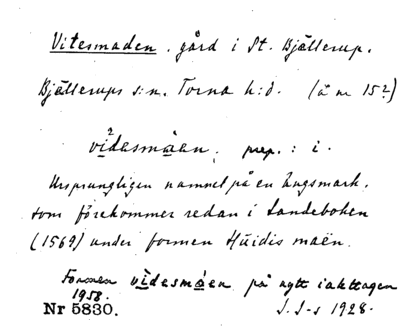 Vitesmaden. gård i St. Bjällerup.
Bjällerups s:n. Torna h:d. (å nr 15?)
vi̱desmå̱en. prep.: i.
Ursprungligen namnet på en Ängsmark,
som förekommer redan i Landeboken
(1569) under formen Huidis maën.
Formen vi̱desmå̱en på nytt iakttagen
1958.
Nr 5830. J. J-s 1928.